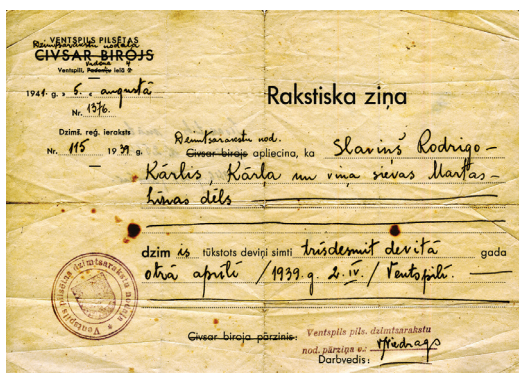 VENTSPILS PILSĒTAS
Dzimtsarakstu nodaļa
CIVSAR. BIROJS
Ventspilī, ielā
1941. g. „ 5. „ augustā
Nr. 1376.
Dzimš. reģ. ieraksts
Nr. 115 1939. g.
Rakstiska ziņa
Dzimtsarakstu nod.
Civsar. birojs apliecina, ka Slaviņš Rodrigo-
Kārlis Kārļa un viņa sievas Martas-
Līnas dēls
dzim is tūkstots deviņi simti trīsdesmit devītā gada
otrā aprīlī /1939. g. 2. IV./ Ventspilī.
Ventspils pilsētas dzimtsarakstu nodaļa
Civsar. biroja pārzinis:
Ventspils pils. dzimtsarakstu
nod. pārziņa v.:
Darbvedis: